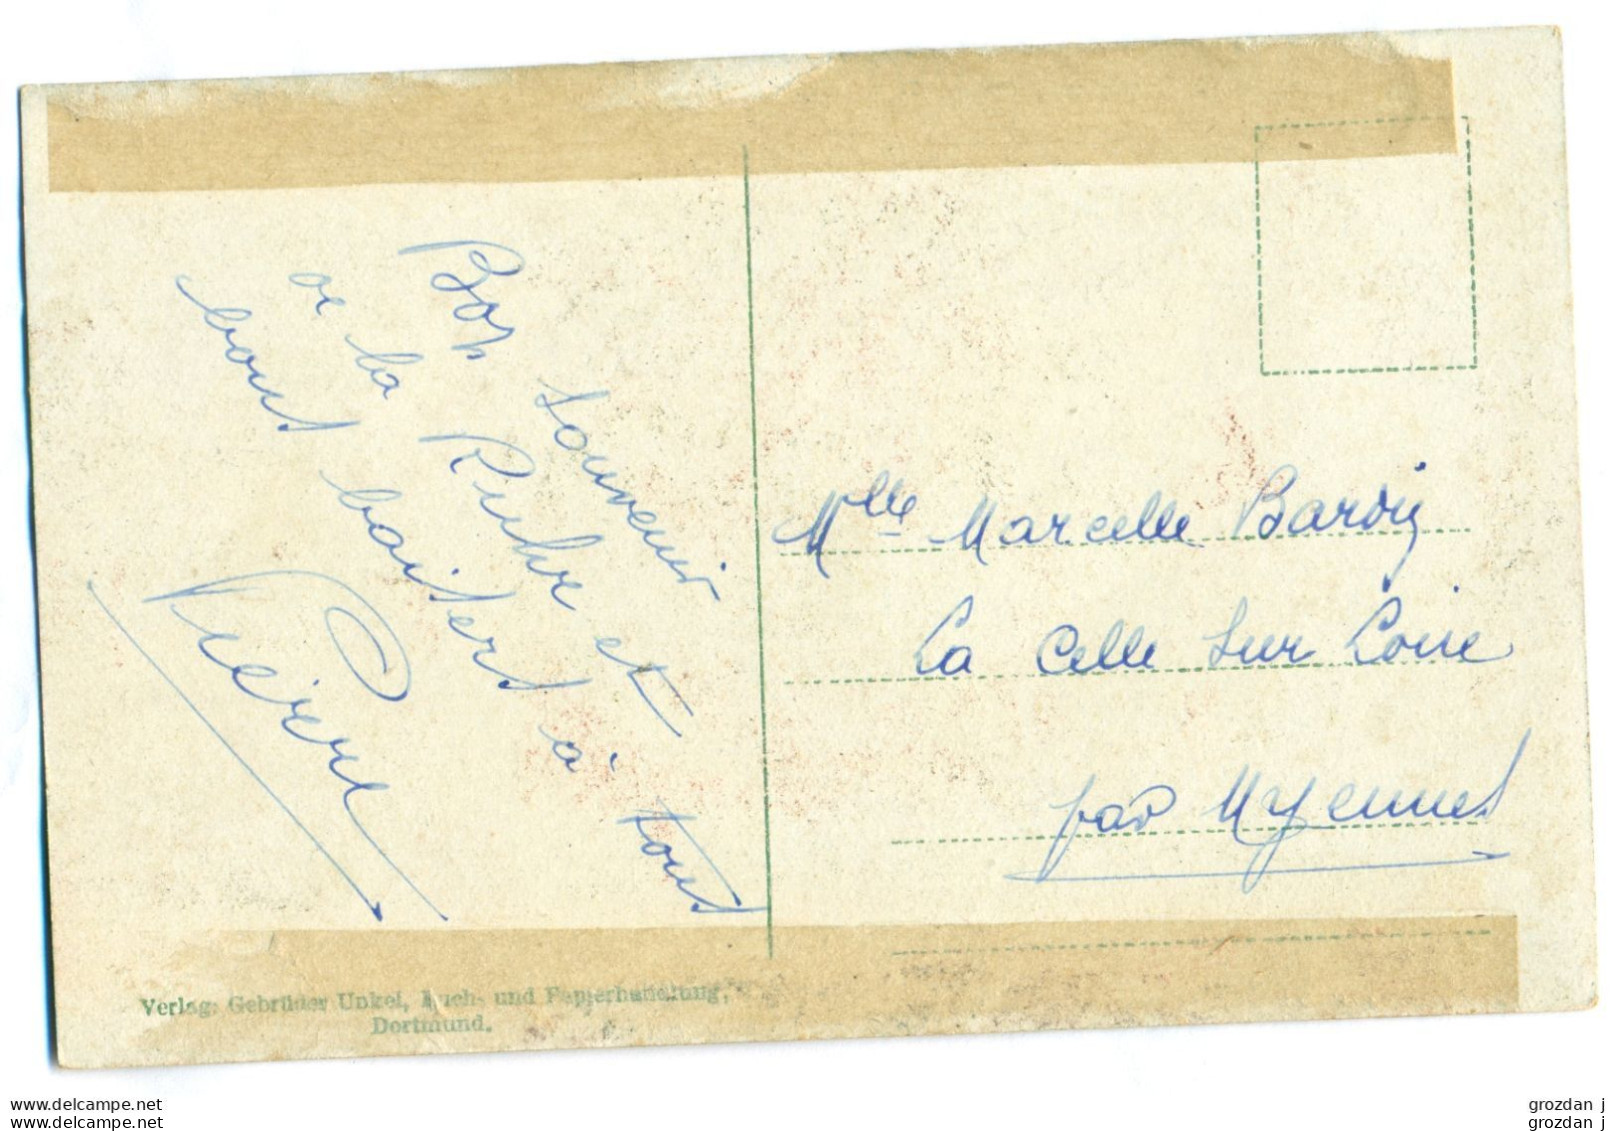 Bon souvenir
de la Ruhr et
bons baisers à tous
Pierre
Mlle Marcelle
La Celle sur Loire
par Myennes
Verlag: Gebrüder Unkel, Buch- und Papierhandlung,
Dortmund.
www.delcampe.net
www.delcampe.net
grozdan j
grozdan j